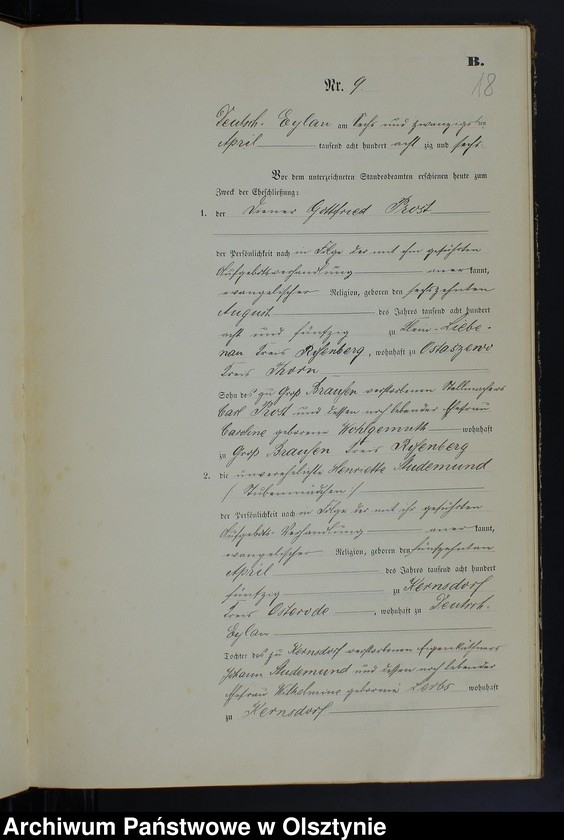 B.
18
Nr. 9
Deutsch-Eylau am sechs und zwanzigsten
April tausend acht hundert acht zig und sechs.
Vor dem unterzeichneten Standesbeamten erschienen heute zum
Zweck der Eheschließung:
1. der Diener Gottfried Prost
der Persönlichkeit nach in Folge der mit ihm geführten
Aufgebotsverhandlung aner kannt,
evangelischer Religion, geboren den sechszehnten
August des Jahres tausend acht hundert
acht und fünfzig zu Klein-Liebe-
nau Kreis, wohnhaft zu Ostaszewo
Kreis Thorn
Sohn des zu Groß Brausen verstorbenen Stellmachers
Carl Prost und dessen noch lebender Ehefrau
Caroline geborene Wohlgemuth wohnhaft
zu Groß Brausen Kreis
2. die unverehelichte Henriette Audemund
/ Stubenmädchen /
der Persönlichkeit nach in Folge der mit ihr geführten
Aufgebots-Verhandlung aner kannt,
evangelischer Religion, geboren den fünfzehnten
April des Jahres tausend acht hundert
fünfzig zu Kernsdorf
Kreis Osterode, wohnhaft zu Deutsch-
Eylau
Tochter des zu Kernsdorf verstorbenen Eigenkäthners
Johann Audemund und dessen noch lebender
Ehefrau Wilhelmine geborene Lerbs wohnhaft
zu Kernsdorf
Archiwum Państwowe w Olsztynie